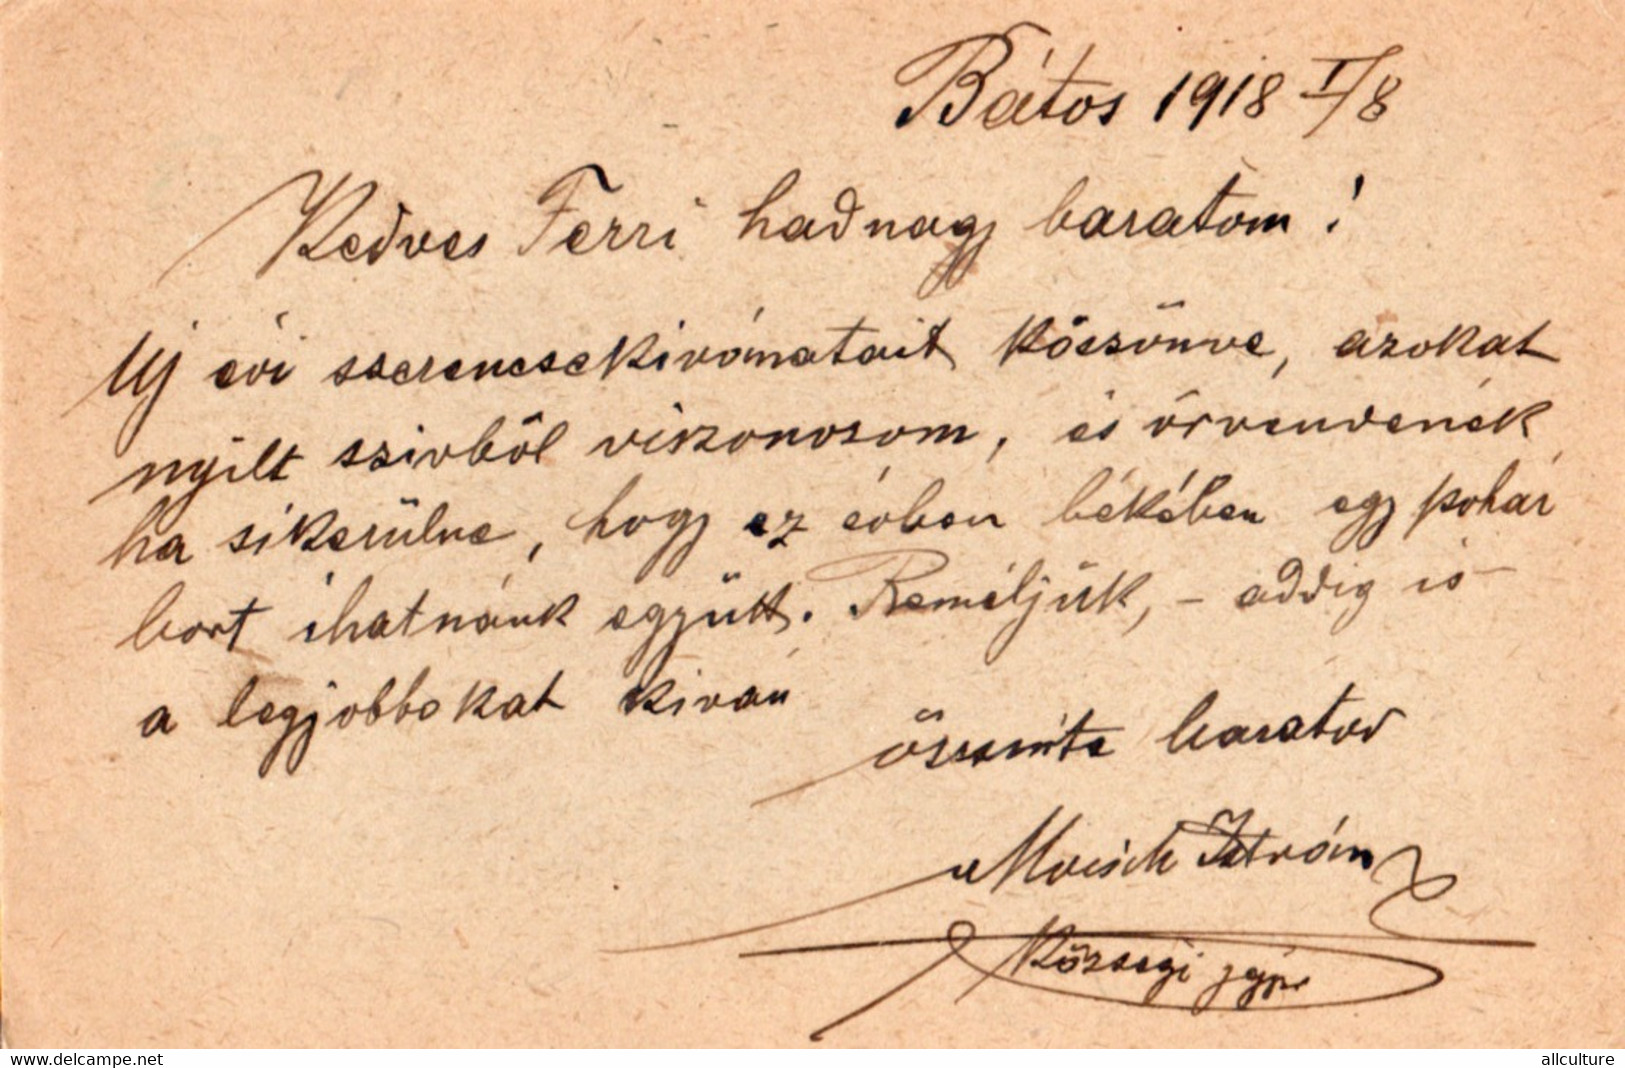 Bátos 1918 I/8
Kedves Ferri hadnagy baratom!
Uj évi szerencsekivánatait köszönve, azokat
nyilt szivből viszonozom, és örvendenék
ha sikerülne, hogy ez évben békében egy pohár
bort ihatnánk együtt. Reméljük, - addig is
a legjobbokat kiván
őszinte baratod
István
Községi jegyző
www.delcampe.net
allculture